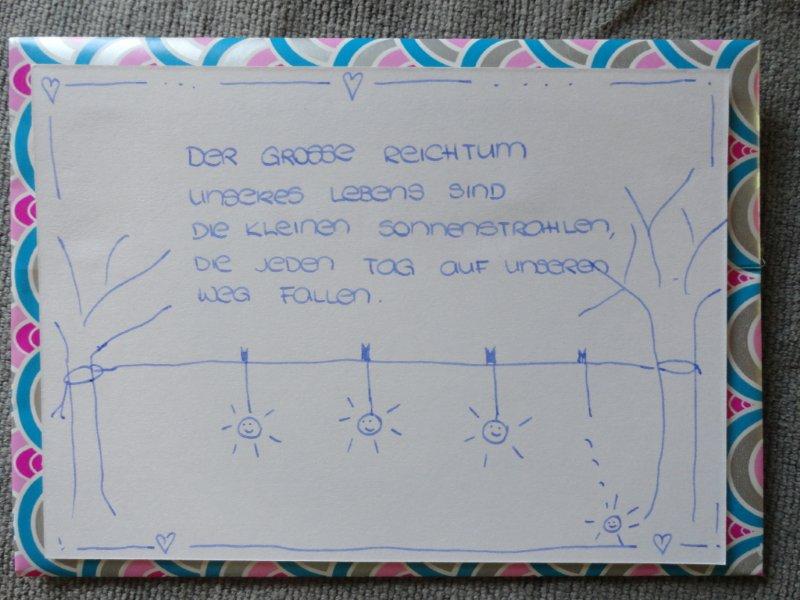 DER GROSSE REICHTUM
UNSERES LEBENS SIND
DIE KLEINEN SONNENSTRAHLEN,
DIE JEDEN TAG AUF UNSEREN
WEG FALLEN.